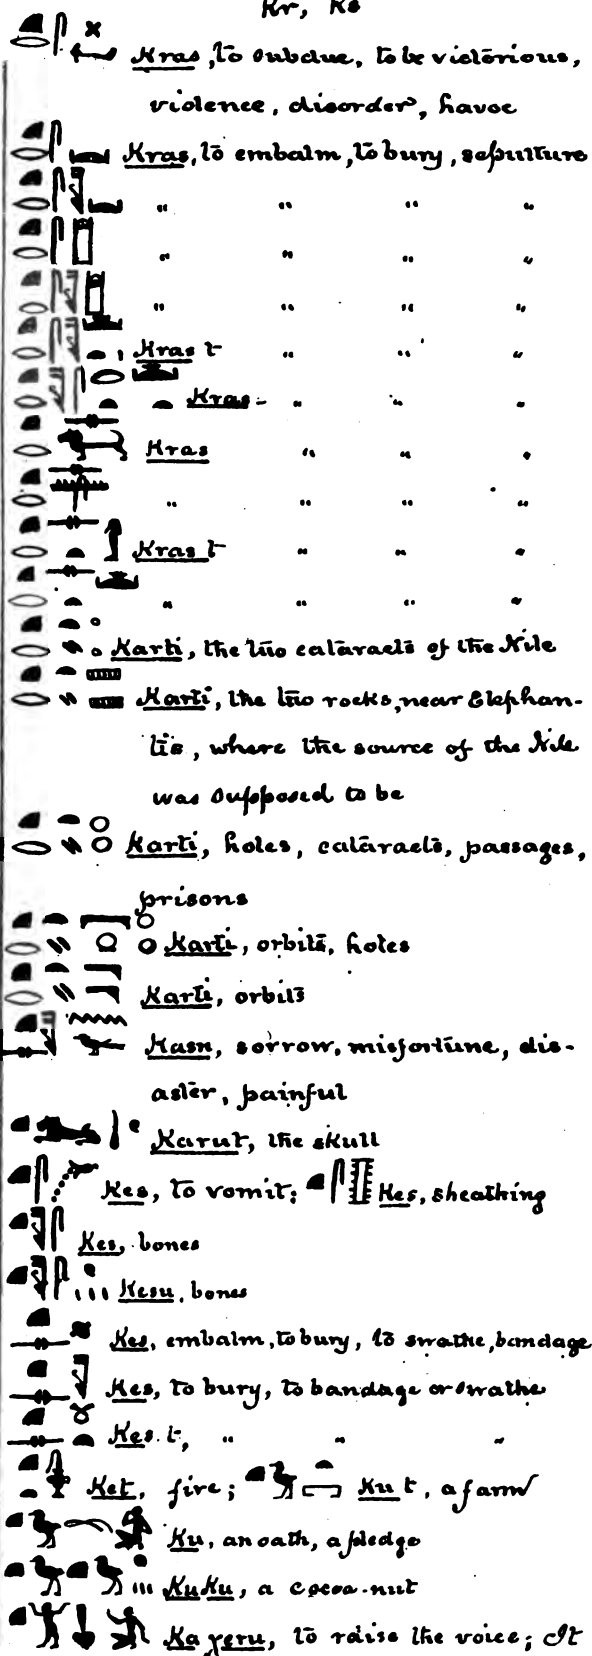 Kr, Ks
Kras, to subdue, to be victorious,
violence, disorder, havoc
Kras, to embalm, to bury, sepulture
" " " "
" " " "
" " " "
Kras t " " "
Kras - " " "
Kras " " "
" " " "
Kras t " " "
" " " "
Karti, the two cataracts of the Nile
Karti, the two rocks, near Elephan-
tis, where the source of the Nile
was supposed to be
Karti, holes, cataracts, passages,
prisons
Karti, orbits, holes
Karti, orbits
Kasn, sorrow, misfortune, dis-
aster, painful
Karut, the skull
Kes, to vomit; Kes, sheathing
Kes, bones
Kesu, bones
Kes, embalm, to bury, to swathe, bandage
Kes, to bury, to bandage or swathe
Kes.t, " " "
Ket, fire; Ku t, a farm
Ku, an oath, a pledge
KuKu, a cocoa-nut
Ka xeru, to raise the voice; It